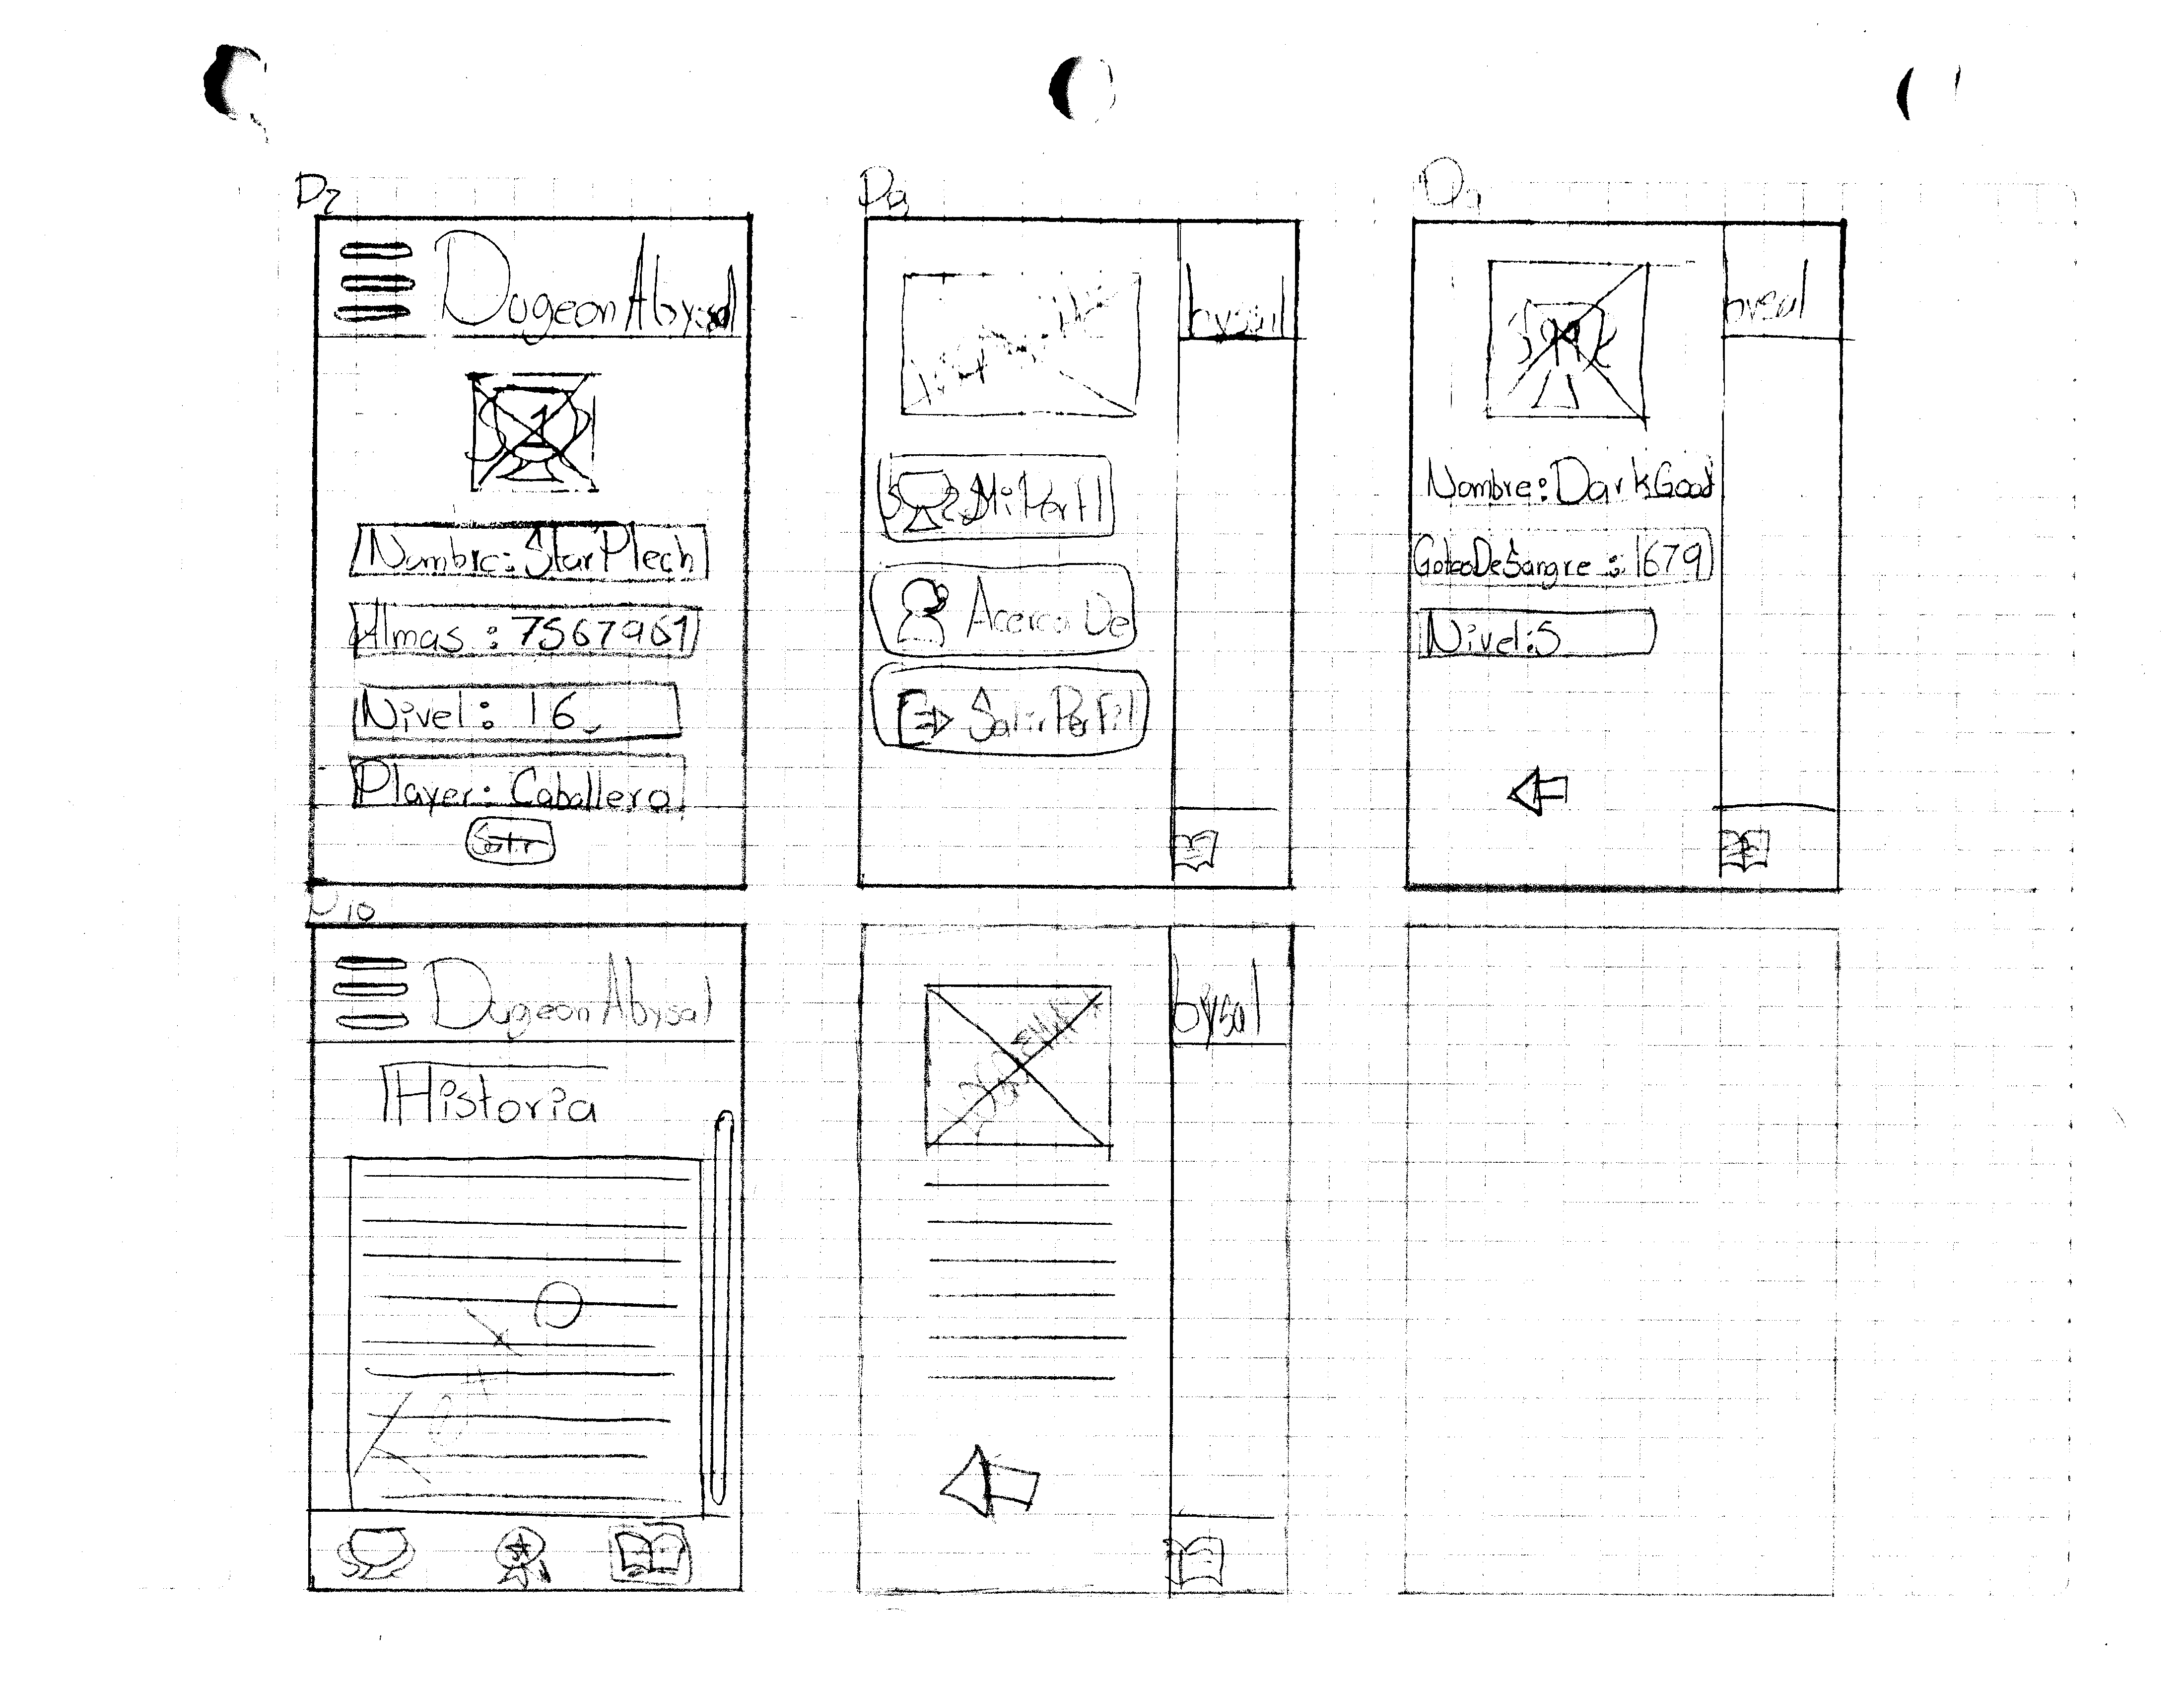 D7
DugeonAbysal
1
Nombre: StarPlech
Almas : 7567961
Nivel: 16
Player: Caballero
Salir
bysal
Mi Perfil
Acerca De
Salir Perfil
bysal
Nombre: DarkGood
GoteoDeSangre : 1679
Nivel:5
D10
DugeonAbysal
Historia
Texto
bysal